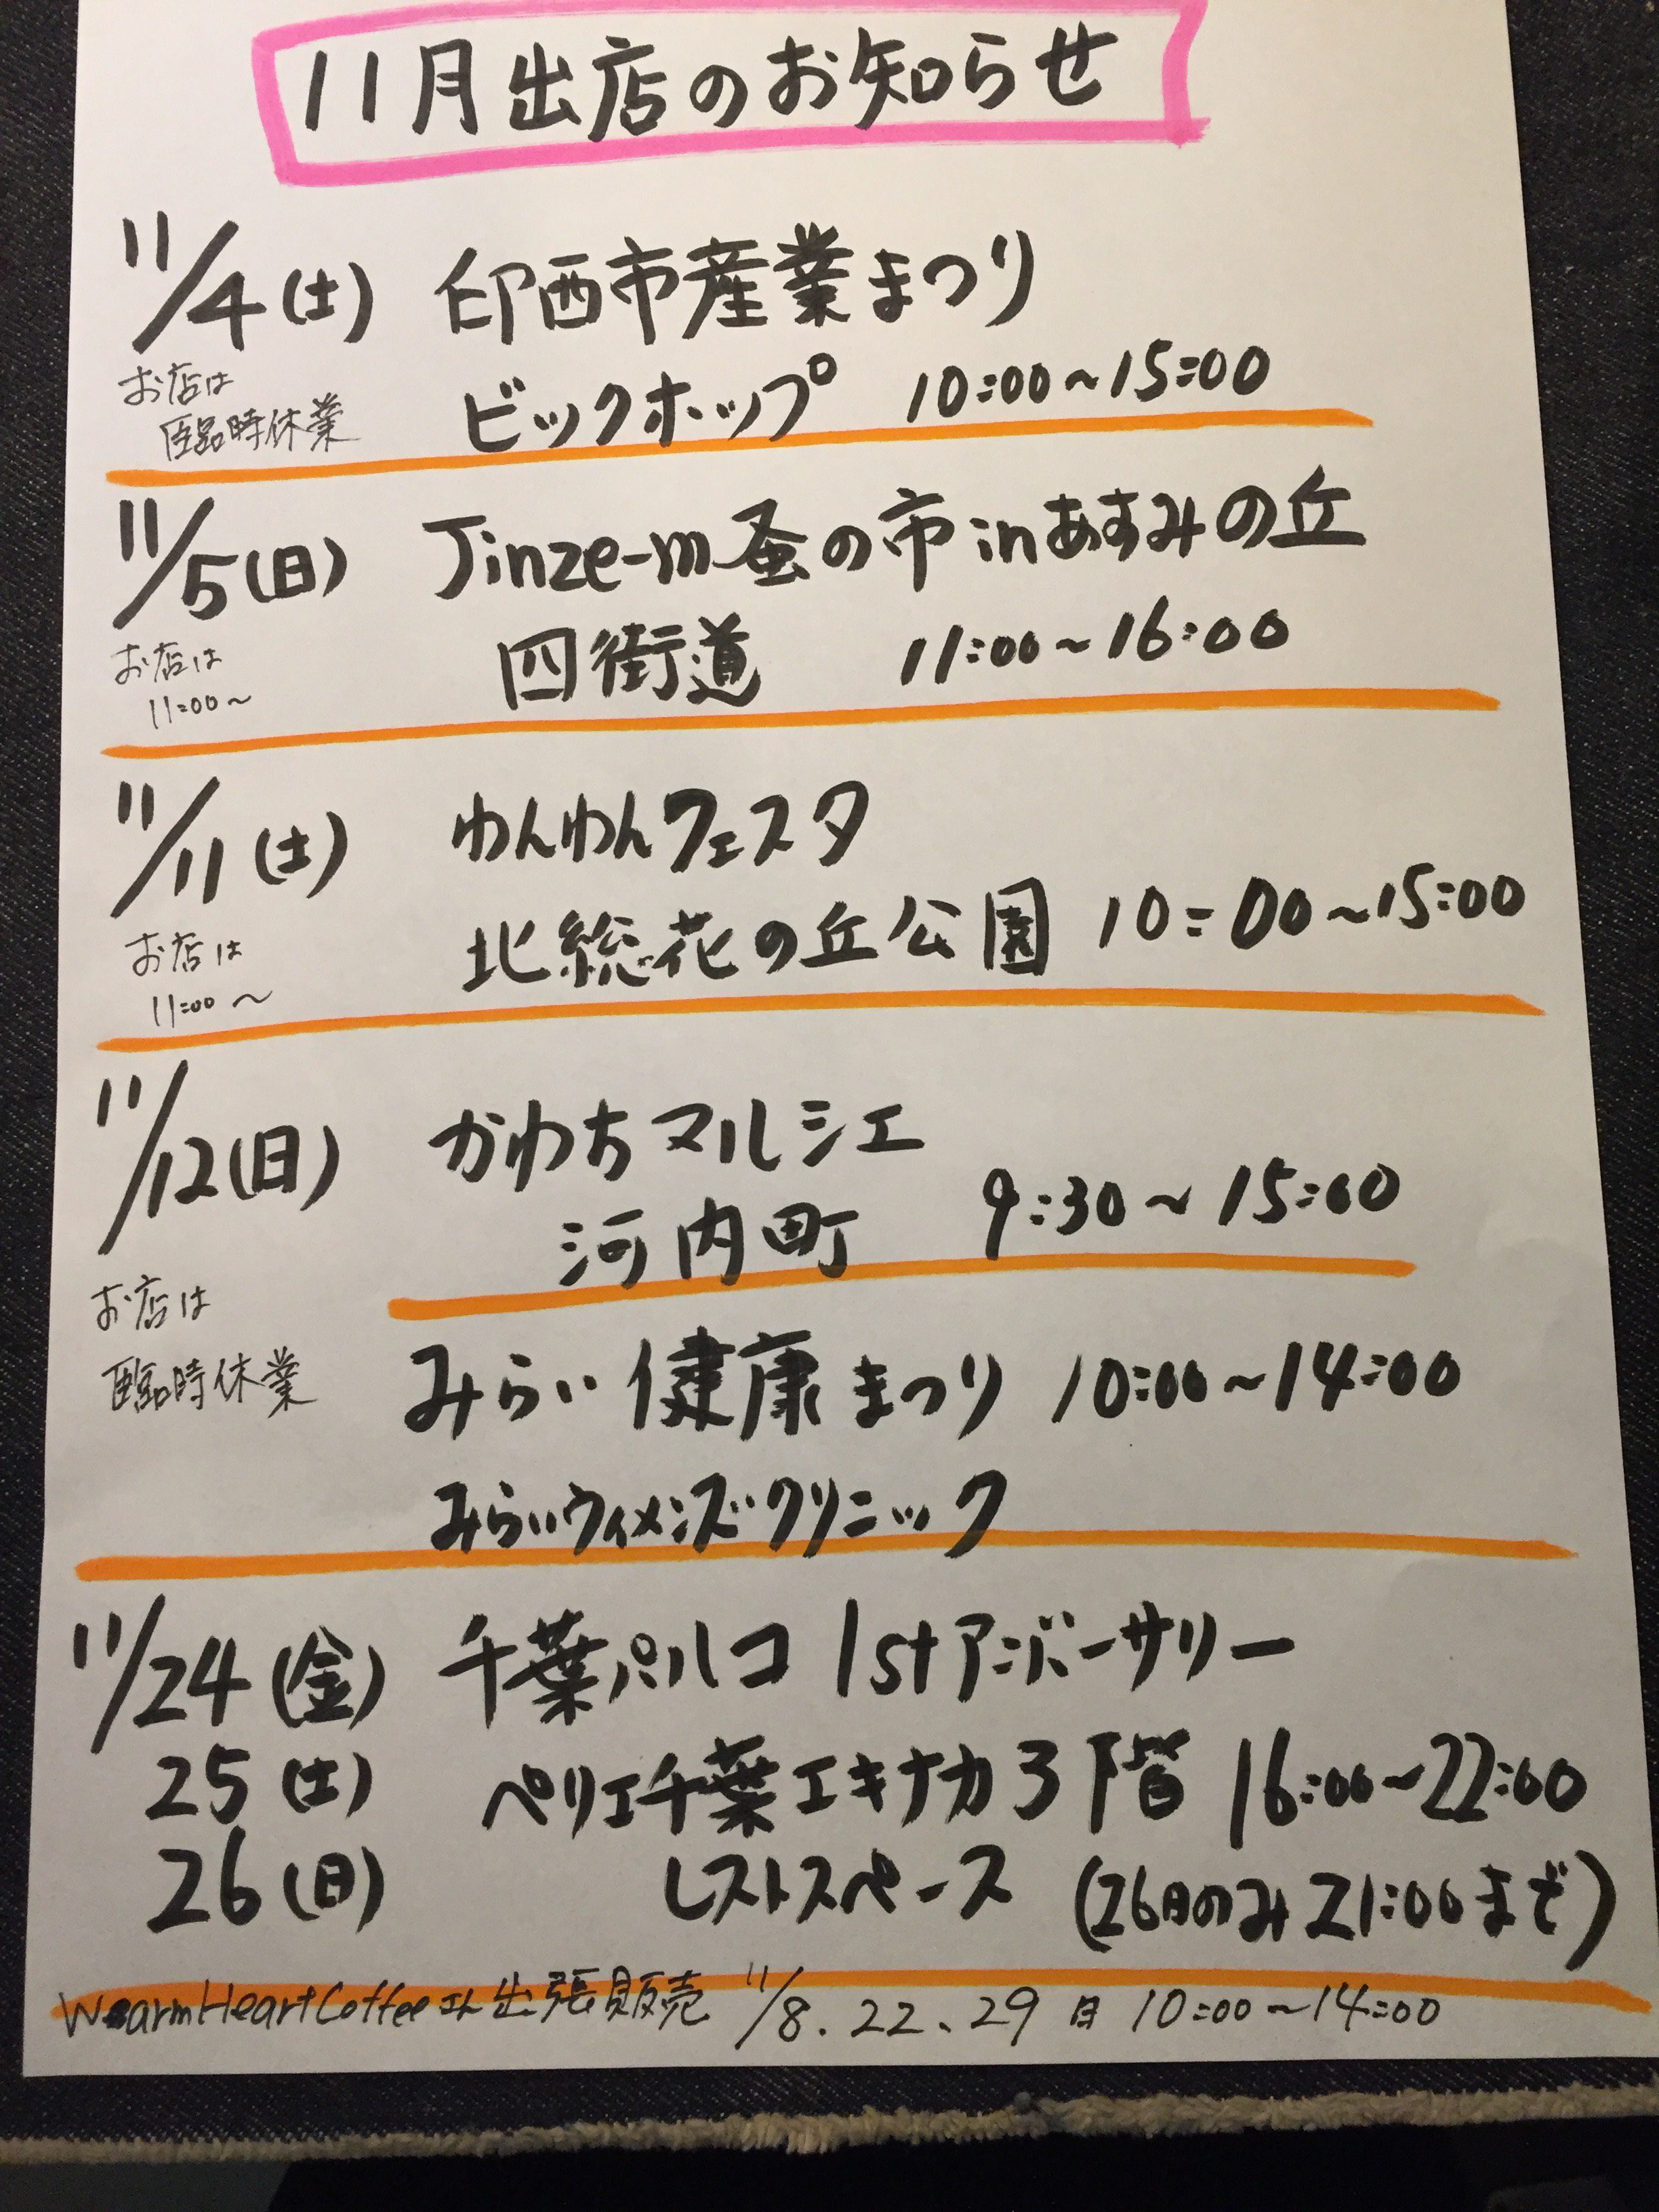 11月出店のお知らせ
11/4(土) 印西市産業まつり
お店は
臨時休業
ビックホップ 10:00~15:00
11/5(日) Jinze-m蚤の市inあすみの丘
お店は
11:00~
四街道 11:00~16:00
11/11(土) わんわんフェスタ
お店は
11:00~
北総花の丘公園 10:00~15:00
11/12(日) かわちマルシェ
河内町 9:30~15:00
お店は
臨時休業
みらい健康まつり 10:00~14:00
みらいウィメンズクリニック
11/24(金) 千葉パルコ 1stアニバーサリー
25(土) ペリエ千葉エキナカ3階 16:00~22:00
26(日) レストスペース (26日のみ21:00まで)
WarmHeartCoffeeさん出張販売 11/8.22、29日 10:00~14:00